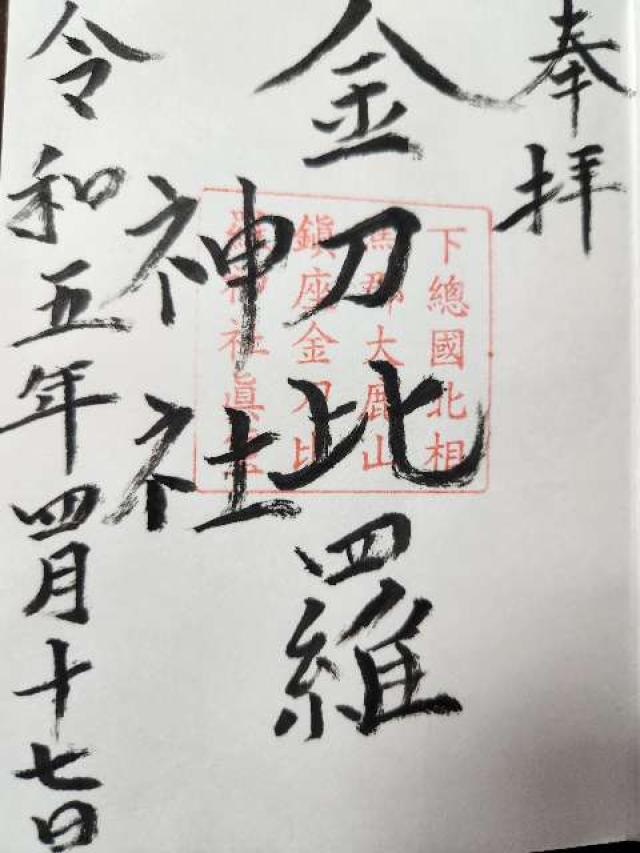 奉拝
金刀比羅
神社
令和五年四月十七日
下總國北相
馬郡大鹿山
鎮座金刀比
羅神社眞